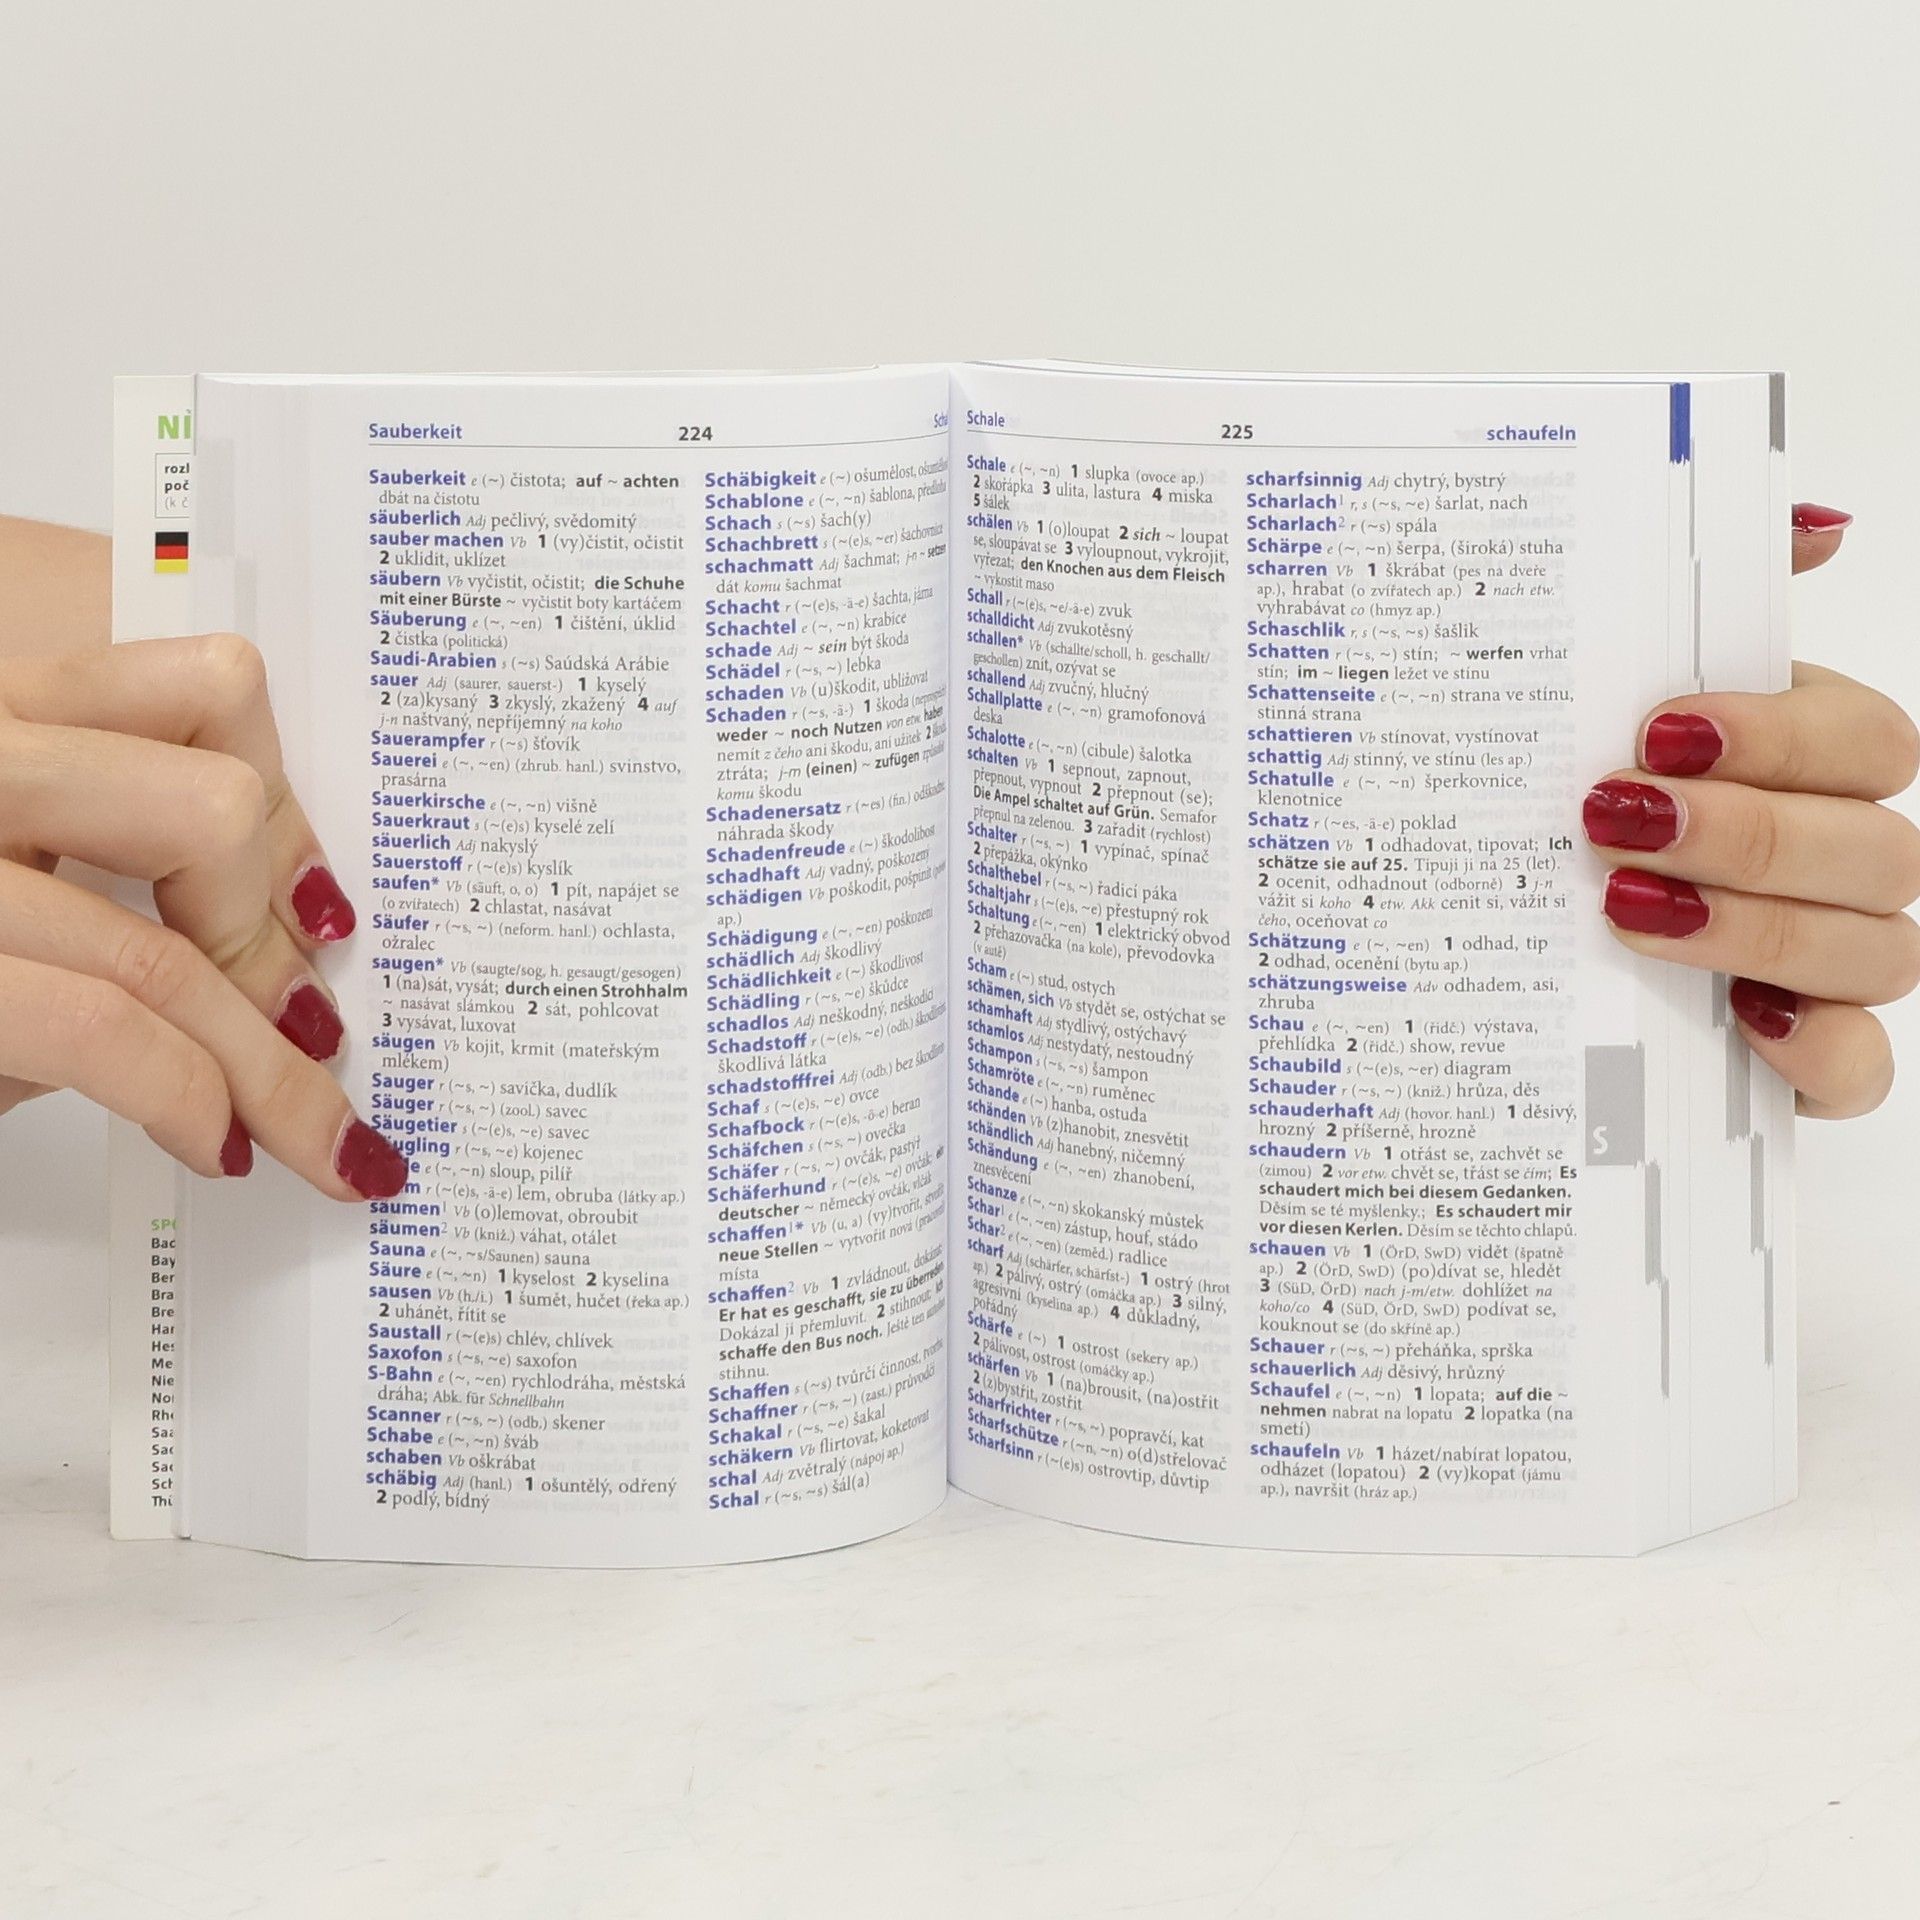 NĚ
rozl
poč
(k č
SPO
Bad
Bay
Ber
Bra
Bre
Har
Hes
Me
Nie
Nor
Rhe
Saa
Sac
Sac
Sch
Thü
Sauberkeit 224
Sauberkeit e (~) čistota; auf ~ achten
dbát na čistotu
säuberlich Adj pečlivý, svědomitý
sauber machen Vb 1 (vy)čistit, očistit
2 uklidit, uklízet
säubern Vb vyčistit, očistit; die Schuhe
mit einer Bürste ~ vyčistit boty kartáčem
Säuberung e (~, ~en) 1 čištění, úklid
2 čistka (politická)
Saudi-Arabien s (~s) Saúdská Arábie
sauer Adj (saurer, sauerst-) 1 kyselý
2 (za)kysaný 3 zkyslý, zkažený 4 auf
j-n naštvaný, nepříjemný na koho
Sauerampfer r (~s) šťovík
Sauerei e (~, ~en) (zhrub. hanl.) svinstvo,
prasárna
Sauerkirsche e (~, ~n) višně
Sauerkraut s (~(e)s) kyselé zelí
säuerlich Adj nakyslý
Sauerstoff r (~(e)s) kyslík
saufen* Vb (säuft, o, o) 1 pít, napájet se
(o zvířatech) 2 chlastat, nasávat
Säufer r (~s, ~) (neform. hanl.) ochlasta,
ožralec
saugen* Vb (saugte/sog, h. gesaugt/gesogen)
1 (na)sát, vysát; durch einen Strohhalm
~ nasávat slámkou 2 sát, pohlcovat
3 vysávat, luxovat
säugen Vb kojit, krmit (mateřským
mlékem)
Sauger r (~s, ~) savička, dudlík
Säuger r (~s, ~) (zool.) savec
Säugetier s (~(e)s, ~e) savec
ugling r (~s, ~e) kojenec
e e (~, ~n) sloup, pilíř
m r (~(e)s, -ä-e) lem, obruba (látky ap.)
säumen1 Vb (o)lemovat, obroubit
säumen2 Vb (kniž.) váhat, otálet
Sauna e (~, ~s/Saunen) sauna
Säure e (~, ~n) 1 kyselost 2 kyselina
sausen Vb (h./i.) 1 šumět, hučet (řeka ap.)
2 uhánět, řítit se
Saustall r (~(e)s) chlév, chlívek
Saxofon s (~s, ~e) saxofon
S-Bahn e (~, ~en) rychlodráha, městská
dráha; Abk. für Schnellbahn
Scanner r (~s, ~) (odb.) skener
Schabe e (~, ~n) šváb
schaben Vb oškrábat
schäbig Adj (hanl.) 1 ošuntělý, odřený
2 podlý, bídný
Schäbigkeit e (~) ošumělost,
Schablone e (~, ~n) šablona, předloha
Schach s (~s) šach(y)
Schachbrett s (~(e)s, ~er) šachovnice
schachmatt Adj šachmat; j-n ~ setzen
dát komu šachmat
Schacht r (~(e)s, -ä-e) šachta, jáma
Schachtel e (~, ~n) krabice
schade Adj ~ sein být škoda
Schädel r (~s, ~) lebka
schaden Vb (u)škodit, ubližovat
Schaden r (~s, -ä-) 1 škoda
weder ~ noch Nutzen von etw. haben
nemít z čeho ani škodu, ani užitek 2
ztráta; j-m (einen) ~ zufügen způsobit
komu škodu
Schadenersatz r (~es) (fin.) odškodné,
náhrada škody
Schadenfreude e (~) škodolibost
schadhaft Adj vadný, poškozený
schädigen Vb poškodit, pošpinit
ap.)
Schädigung e (~, ~en) poškození
schädlich Adj škodlivý
Schädlichkeit e (~) škodlivost
Schädling r (~s, ~e) škůdce
schadlos Adj neškodný, neškodící
Schadstoff r (~(e)s, ~e) (odb.)
škodlivá látka
schadstofffrei Adj (odb.) bez škodlivin
Schaf s (~(e)s, ~e) ovce
Schafbock r (~(e)s, -ö-e) beran
Schäfchen s (~s, ~) ovečka
Schäfer r (~s, ~) ovčák, pastýř
Schäferhund r (~(e)s, ~e) ovčák; ein
deutscher ~ německý ovčák, vlčák
schaffen1* Vb (u, a) (vy)tvořit, stvořit
neue Stellen ~ vytvořit nová (pracovní)
místa
schaffen2 Vb 1 zvládnout, dokázat;
Er hat es geschafft, sie zu überreden.
Dokázal ji přemluvit. 2 stihnout; Ich
schaffe den Bus noch. Ještě ten autobus
stihnu.
Schaffen s (~s) tvůrčí činnost, tvorba
Schaffner r (~s, ~) (zast.) průvodčí
Schakal r (~s, ~e) šakal
schäkern Vb flirtovat, koketovat
schal Adj zvětralý (nápoj ap.)
Schal r (~s, ~s) šál(a)
Schale 225 schaufeln
Schale e (~, ~n) 1 slupka (ovoce ap.)
2 skořápka 3 ulita, lastura 4 miska
5 šálek
schälen Vb 1 (o)loupat 2 sich ~ loupat
se, sloupávat se 3 vyloupnout, vykrojit,
vyřezat; den Knochen aus dem Fleisch
~ vykostit maso
Schall r (~(e)s, ~e/-ä-e) zvuk
schalldicht Adj zvukotěsný
schallen* Vb (schallte/scholl, h. geschallt/
geschollen) znít, ozývat se
schallend Adj zvučný, hlučný
Schallplatte e (~, ~n) gramofonová
deska
Schalotte e (~, ~n) (cibule) šalotka
schalten Vb 1 sepnout, zapnout,
přepnout, vypnout 2 přepnout (se);
Die Ampel schaltet auf Grün. Semafor
přepnul na zelenou. 3 zařadit (rychlost)
Schalter r (~s, ~) 1 vypínač, spínač
2 přepážka, okýnko
Schalthebel r (~s, ~) řadicí páka
Schaltjahr s (~(e)s, ~e) přestupný rok
Schaltung e (~, ~en) 1 elektrický obvod
2 přehazovačka (na kole), převodovka
(v autě)
Scham e (~) stud, ostych
schämen, sich Vb stydět se, ostýchat se
schamhaft Adj stydlivý, ostýchavý
schamlos Adj nestydatý, nestoudný
Schampon s (~s, ~s) šampon
Schamröte e (~, ~n) ruměnec
Schande e (~) hanba, ostuda
schänden Vb (z)hanobit, znesvětit
schändlich Adj hanebný, ničemný
Schändung e (~, ~en) zhanobení,
znesvěcení
Schanze e (~, ~n) skokanský můstek
Schar1 e (~, ~en) zástup, houf, stádo
Schar2 e (~, ~en) (zeměd.) radlice
scharf Adj (schärfer, schärfst-) 1 ostrý (hrot
ap.) 2 pálivý, ostrý (omáčka ap.) 3 silný,
agresivní (kyselina ap.) 4 důkladný,
pořádný
Schärfe e (~) 1 ostrost (sekery ap.)
2 pálivost, ostrost (omáčky ap.)
schärfen Vb 1 (na)brousit, (na)ostřit
2 (z)bystřit, zostřit
Scharfrichter r (~s, ~) popravčí, kat
Scharfschütze r (~n, ~n) o(d)střelovač
Scharfsinn r (~(e)s) ostrovtip, důvtip
scharfsinnig Adj chytrý, bystrý
Scharlach1 r, s (~s, ~e) šarlat, nach
Scharlach2 r (~s) spála
Schärpe e (~, ~n) šerpa, (široká) stuha
scharren Vb 1 škrábat (pes na dveře
ap.), hrabat (o zvířatech ap.) 2 nach etw.
vyhrabávat co (hmyz ap.)
Schaschlik r, s (~s, ~s) šašlik
Schatten r (~s, ~) stín; ~ werfen vrhat
stín; im ~ liegen ležet ve stínu
Schattenseite e (~, ~n) strana ve stínu,
stinná strana
schattieren Vb stínovat, vystínovat
schattig Adj stinný, ve stínu (les ap.)
Schatulle e (~, ~n) šperkovnice,
klenotnice
Schatz r (~es, -ä-e) poklad
schätzen Vb 1 odhadovat, tipovat; Ich
schätze sie auf 25. Tipuji ji na 25 (let).
2 ocenit, odhadnout (odborně) 3 j-n
vážit si koho 4 etw. Akk cenit si, vážit si
čeho, oceňovat co
Schätzung e (~, ~en) 1 odhad, tip
2 odhad, ocenění (bytu ap.)
schätzungsweise Adv odhadem, asi,
zhruba
Schau e (~, ~en) 1 (řidč.) výstava,
přehlídka 2 (řidč.) show, revue
Schaubild s (~(e)s, ~er) diagram
Schauder r (~s, ~) (kniž.) hrůza, děs
schauderhaft Adj (hovor. hanl.) 1 děsivý,
hrozný 2 příšerně, hrozně
schaudern Vb 1 otřást se, zachvět se
(zimou) 2 vor etw. chvět se, třást se čím; Es
schaudert mich bei diesem Gedanken.
Děsím se té myšlenky.; Es schaudert mir
vor diesen Kerlen. Děsím se těchto chlapů.
schauen Vb 1 (ÖrD, SwD) vidět (špatně
ap.) 2 (ÖrD, SwD) (po)dívat se, hledět
3 (SüD, ÖrD) nach j-m/etw. dohlížet na
koho/co 4 (SüD, ÖrD, SwD) podívat se,
kouknout se (do skříně ap.)
Schauer r (~s, ~) přeháňka, sprška
schauerlich Adj děsivý, hrůzný
Schaufel e (~, ~n) 1 lopata; auf die ~
nehmen nabrat na lopatu 2 lopatka (na
smetí)
schaufeln Vb 1 házet/nabírat lopatou,
odházet (lopatou) 2 (vy)kopat (jámu
ap.), navršit (hráz ap.)
S